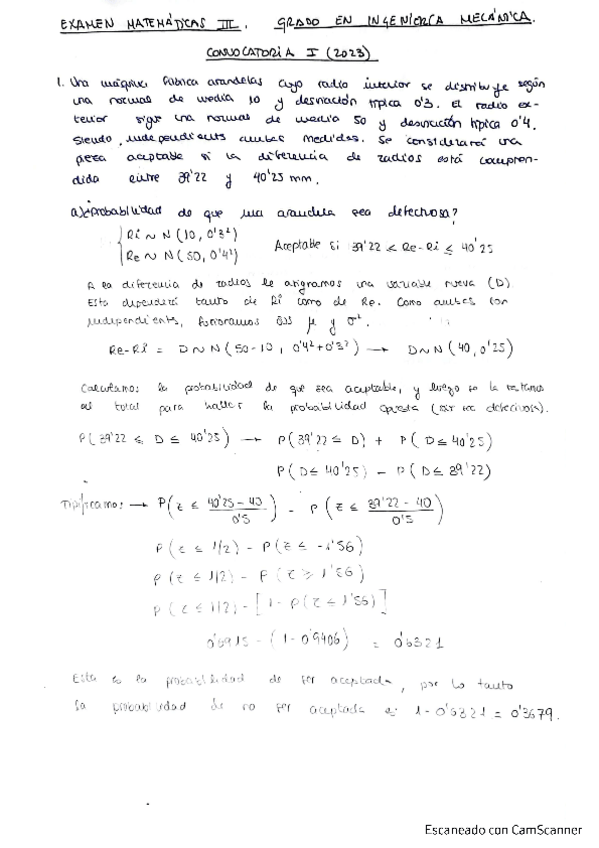 EXAMEN MATEMÁTICAS III. GRADO EN INGENIERÍA MECÁNICA.
CONVOCATORIA I (2023)
1. Una máquina fabrica arandelas cuyo radio interior se distribuye según
una normal de media 10 y desviación típica 0'3. El radio ex-
terior sigue una normal de media 50 y desviación típica 0'4,
siendo independientes ambas medidas. Se considerará una
pieza aceptable si la diferencia de radios está compren-
dida entre 39'22 y 40'25 mm.
a) ¿Probabilidad de que una arandela sea defectuosa?
Ri ~ N(10, 0'3²)
Re ~ N(50, 0'4²)
Aceptable si 39'22 ≤ Re-Ri ≤ 40'25
A la diferencia de radios le asignamos una variable nueva (D).
Esta dependerá tanto de Ri como de Re. Como ambas son
independientes, fusionamos sus μ y σ².
Re-Ri = D ~ N(50-10, 0'4²+0'3²) → D ~ N(40, 0'25)
Calculamos la probabilidad de que sea aceptable, y luego se la restamos
al total para hallar la probabilidad opuesta (ser defectuosa).
P(39'22 ≤ D ≤ 40'25) → P(39'22 ≤ D) + P(D ≤ 40'25)
P(D ≤ 40'25) - P(D ≤ 39'22)
Tipificamos → P(z ≤ 40'25-40/0'5) - P(z ≤ 39'22-40/0'5)
P(z ≤ 1/2) - P(z ≤ -1'56)
P(z ≤ 1/2) - P(z ≥ 1'56)
P(z ≤ 1/2) - [1 - P(z ≤ 1'56)]
0'6915 - (1-0'9406) = 0'6321
Esta es la probabilidad de ser aceptada, por lo tanto
la probabilidad de no ser aceptada es 1-0'6321 = 0'3679.
Escaneado con CamScanner